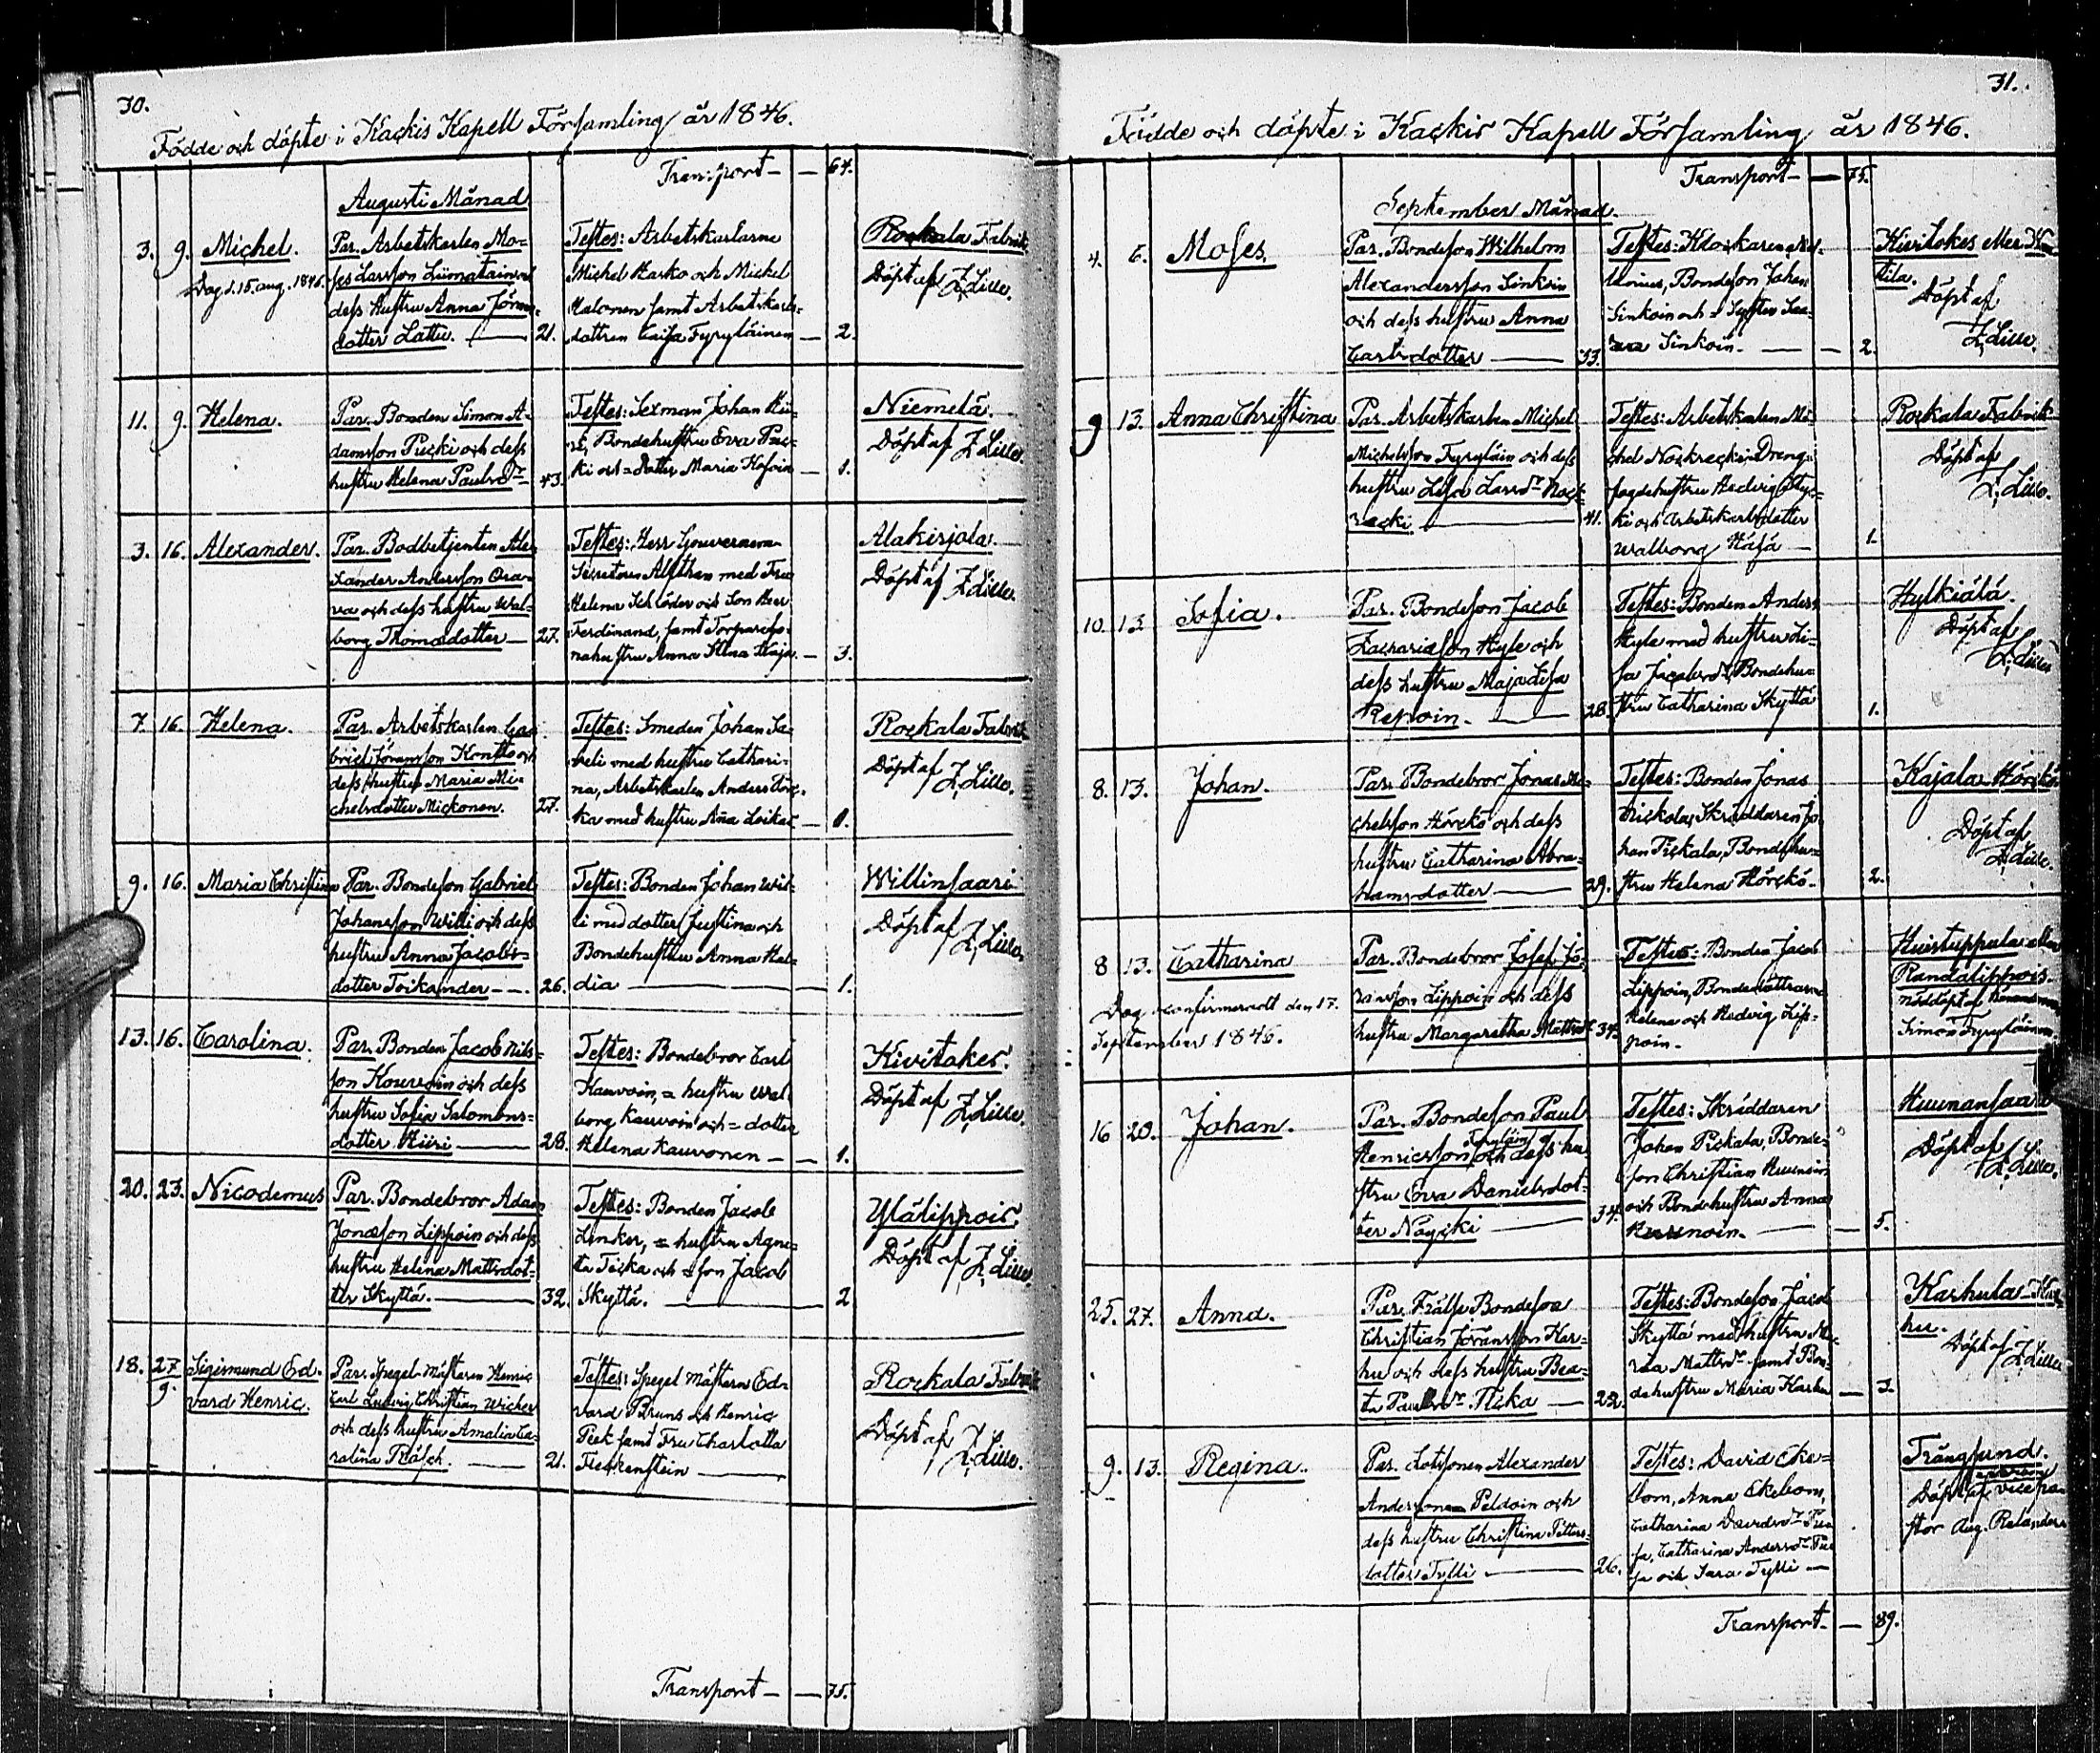 30.
Födde och döpte i Kackis Kapell Församling år 1846.
Transport - — 64.
Augusti Månad
3. 9. Michel.
Dog d. 15. aug. 1846.
Par. Arbetskarlen Mo-
ses Larsson
dess Hustru Anna Jöran-
dotter Lattu. — 21.
Testes: Arbetskarlarne
Michel Harko och Michel
Halonen samt Arbetskarls-
dottren Caisa Tyryläinen — 2.
Rockala Fabrik
Döpt af Z. Lille.
11. 9. Helena.
Par. Bonden Simon A-
damsson Pucki och dess
hustru Helena Paulsdr 43.
Testes: Sexman Johan
Bondehustru Eva Puc-
ki och = dotter Maria — 1.
Niemelä.
Döpt af Z. Lille.
3. 16. Alexander.
Par. Bodbetjenten Ale-
xander Andersson Ora-
va och dess hustru Wal-
borg Thomædotter — 27.
Testes: Herr Gouvernem-
Secreteren Alfthan med Fru
Helena Schlöder och Son Herr
Ferdinand, samt
hustru Anna Stina Kaja. — 3.
Alakirjola.
Döpt af Z. Lille.
7. 16. Helena.
Par. Arbetskarlen Ga-
briel Jöransson Konttо och
dess hustru Maria Mi-
chelsdotter Mickonen. 27.
Testes: Smeden Johan Sa-
veli med hustru Cathari-
na, Arbetskarlen Anders
ka med hustru Aña Loikas — 1.
Rockala Fabrik
Döpt af Z. Lille.
9. 16. Maria Christina
Par. Bondeson Gabriel
Johansson Willi och dess
hustru Anna Jacobs-
dotter Toikander — 26.
Testes: Bonden Johan Wil-
li med dotter Justina och
Bondehustru Anna Hal-
dia — 1.
Willinsaari
Döpt af Z. Lille.
13. 16. Carolina.
Par. Bonden Jacob Nils-
son Kouvoin och dess
hustru Sofia Salomons-
dotter Hiiri — 28.
Testes: Bondebror Carl
Kauvoin, = hustru Wal-
borg Kauvoin och = dotter
Helena Kauvonen — 1.
Kivitokes.
Döpt af Z. Lille.
20. 23. Nicodemus
Par. Bondebror Adam
Jonæson Lippoin och dess
hustru Helena Mattsdot-
ter Skyttä. — 32.
Testes: Bonden Jacob
Linker, = hustru Agne-
ta Ticka och = son Jacob
Skyttä. — 2
Ylälippois.
Döpt af Z. Lille.
18. 27/9. Sigismund Ed-
vard Henric.
Par. Spegel-Mästaren Henric
Carl Ludvig Christian Wicher
och dess hustru Amalia Ca-
rolina Räsch. — 21.
Testes: Spegel Mästern Ed-
vard Bruns och Henric
Peek samt Fru Charlotta
Fleckenstein —
Rockala Fabrik
Döpt af Z. Lille.
Transport - — 75.
31.
Födde och döpte i Kackis Kapell Församling år 1846.
Transport - — 75.
September Månad.
4. 6. Moses.
Par. Bondeson Wilhelm
Alexandersson Sinkoin
och dess hustru Anna
Carlsdotter — 33.
Testes: Klockaren
Bondeson Johan
Sinkoin och = Syster Saa-
ra Sinkoin. — 2.
Kivitokes eller
Döpt af
Z. Lille.
9 13. Anna Christina
Par. Arbetskarlen Michel
Michelsson Tyryläin och dess
hustru Lisa Larsdr Nock-
recki — 41.
Testes: Arbetskarlen Mi-
chel Nockrecki, Dreng-
fogdehustru Hedvig
ki och Arbetskarlsdotter
Walborg Häfä — 1.
Rockala Fabrik
Döpt af
Z. Lille.
10. 13 Sofia.
Par. Bondeson Jacob
Zachariæson Hyle och
dess hustru Maja Lisa
Repoin. — 28.
Testes: Bonden Anders
Hyle med hustru Li-
sa Jacobsdr, Bondehu-
stru Catharina Skyttä 1.
Hylkiälä.
Döpt af
Z. Lille
8. 13. Johan.
Par. Bondebror Jonas Mi-
chelsson Hörckö och dess
hustru Catharina Abra-
hamsdotter — 29.
Testes: Bonden Jonas
Nickola, Skräddaren Jo-
han Pickala, Bondehu-
stru Helena Hörckö. 2.
Kajala Hörckö
Döpt af
Z. Lille.
8 13. Catharina
Dog confirmeradt den 17.
September 1846.
Par. Bondebror Josef Jö-
ransson Lippoin och dess
hustru Margaretha Mattsdr 34.
Testes: Bonden Jacob
Lippoin, Bondedöttrarne
Helena och Hedvig Lip-
poin.
Randalippois.
nöddöpt af
Simon Tyryläinen
16 20. Johan.
Par. Bondeson Paul
Henricsson Tyryläin och dess hu-
stru Eva Danielsdot-
ter Naycki — 34.
Testes: Skräddaren
Johan Pickala, Bonde-
son Christian Huunoin
och Bondehustru Anna
— 5.
Huunansaari
Döpt af
Z. Lille.
25. 27. Anna.
Par. Frälse Bondeson
Christian Jöransson Kar-
hu och dess hustru Bea-
ta Paulsdr Ticka — 22.
Testes: Bondeson Jacob
Skyttä med hustru Ma-
ria Mattsdr samt Bon-
dehustru Maria Karhu — 3.
Karhula
hu.
Döpt af Z. Lille
9. 13. Regina.
Par. Lotsonen Alexander
Andersson Peldoin och
dess hustru Christina Petters-
dotter Tylli — 26.
Testes: David Eke-
bom, Anna Ekebom,
Catharina Davidsdr
Catharina Andersdr
och Sara Tylli —
Trångsund.
Döpt af vice pa-
stor Aug. Relander
Transport - — 89.